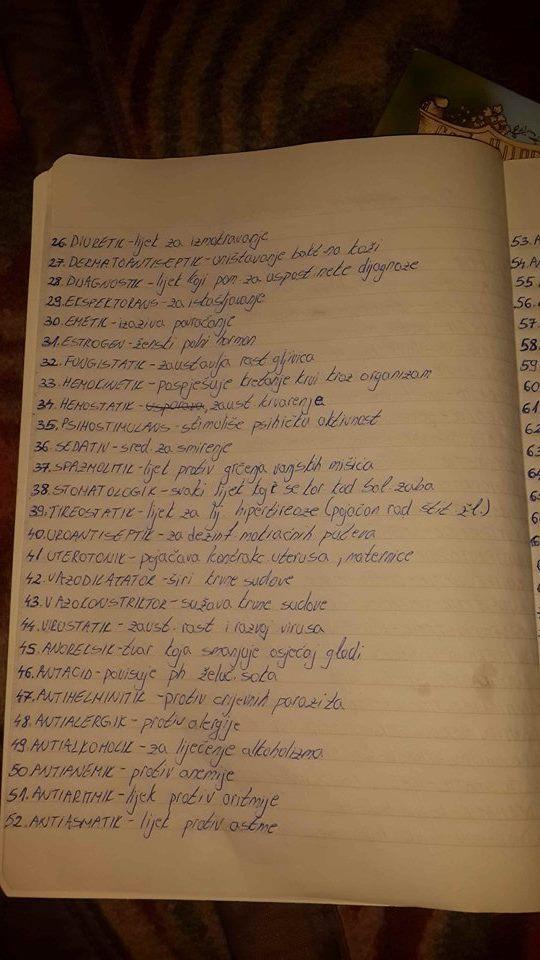 26. DIURETIK - lijek za izmokravanje
27. DERMATOANTISEPTIK - uništavanje bakt na koži
28. DIJAGNOSTIK - lijek koji pom za uspost neke dijagnoze
29. EKSPEKTORANS - za iskašljavanje
30. EMETIK - izaziva povraćanje
31. ESTROGEN - ženski polni hormon
32. FUNGISTATIK - zaustavlja rast gljivica
33. HEMOKINETIK - pospješuje kretanje krvi kroz organizam
34. HEMOSTATIK - zaust krvarenje
35. PSIHOSTIMULANS - stimuliše psihičku aktivnost
36 SEDATIV - sred. za smirenje
37. SPAZMOLITIK - lijek protiv grčenja mišića
38. STOMATOLOGIK - svaki lijek koji se kor kod bol. zuba
39. TIREOSTATIK - lijek za lij. hipertireoze (pojačan rad štit žl.)
40. UROANTISEPTIK - za dezinf. mokraćnih puteva
41 UTEROTONIK - pojačava kontrakc. uterusa, maternice
42. VAZODILATATOR - širi krvne sudove
43. VAZOKONSTRIKTOR - sužava krvne sudove
44. VIRUSTATIK - zaust. rast i razvoj virusa
45. ANOREKSIK - tvar koja smanjuje osjećaj gladi
46. ANTACID - povisuje ph želuč. soka
47. ANTIHELMINITIK - protiv crijevnih parazita
48. ANTIALERGIK - protiv alergije
49. ANTIALKOHOLIK - za liječenje alkoholizma
50. ANTIANEMIK - protiv anemije
51. ANTIARITMIK - lijek protiv aritmije
52. ANTIASMATIK - lijek protiv astme
53. A
54. A
55
56.
57.
58.
59
60
61
62
63